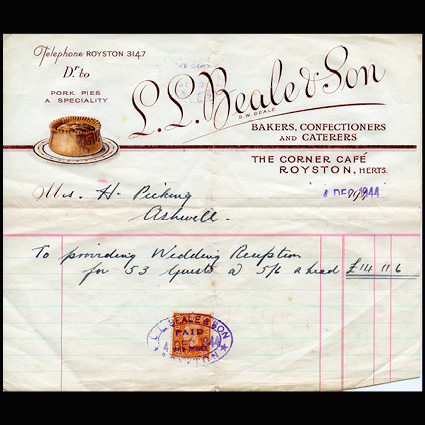 Telephone ROYSTON 3147
Dr to
PORK PIES
A SPECIALITY
L.L. Beale & Son
S.W. BEALE
BAKERS, CONFECTIONERS
AND CATERERS
THE CORNER CAFÉ
ROYSTON, HERTS.
4 DEC 1944
Mrs. H. Picking
Ashwell.
To providing Wedding Reception
for 53 Guests @ 5/6 a head £14 11 6
L. L. BEALE & SON
PAID
4 DEC 1944
ROYSTON